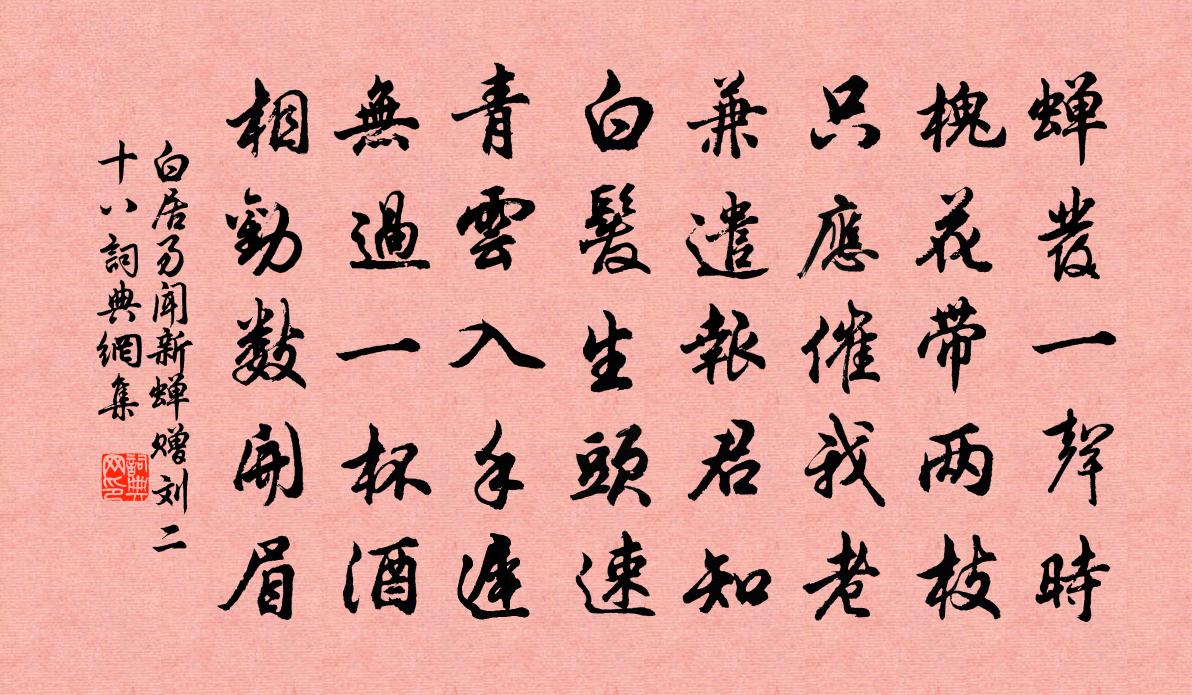 蝉發一聲時
槐花带两枝
只應催我老
兼遣報君知
白髮生頭速
青雲入手遲
無過一杯酒
相勸數開眉
白居易聞新蝉赠刘二
十八詞典網集
詞典网印